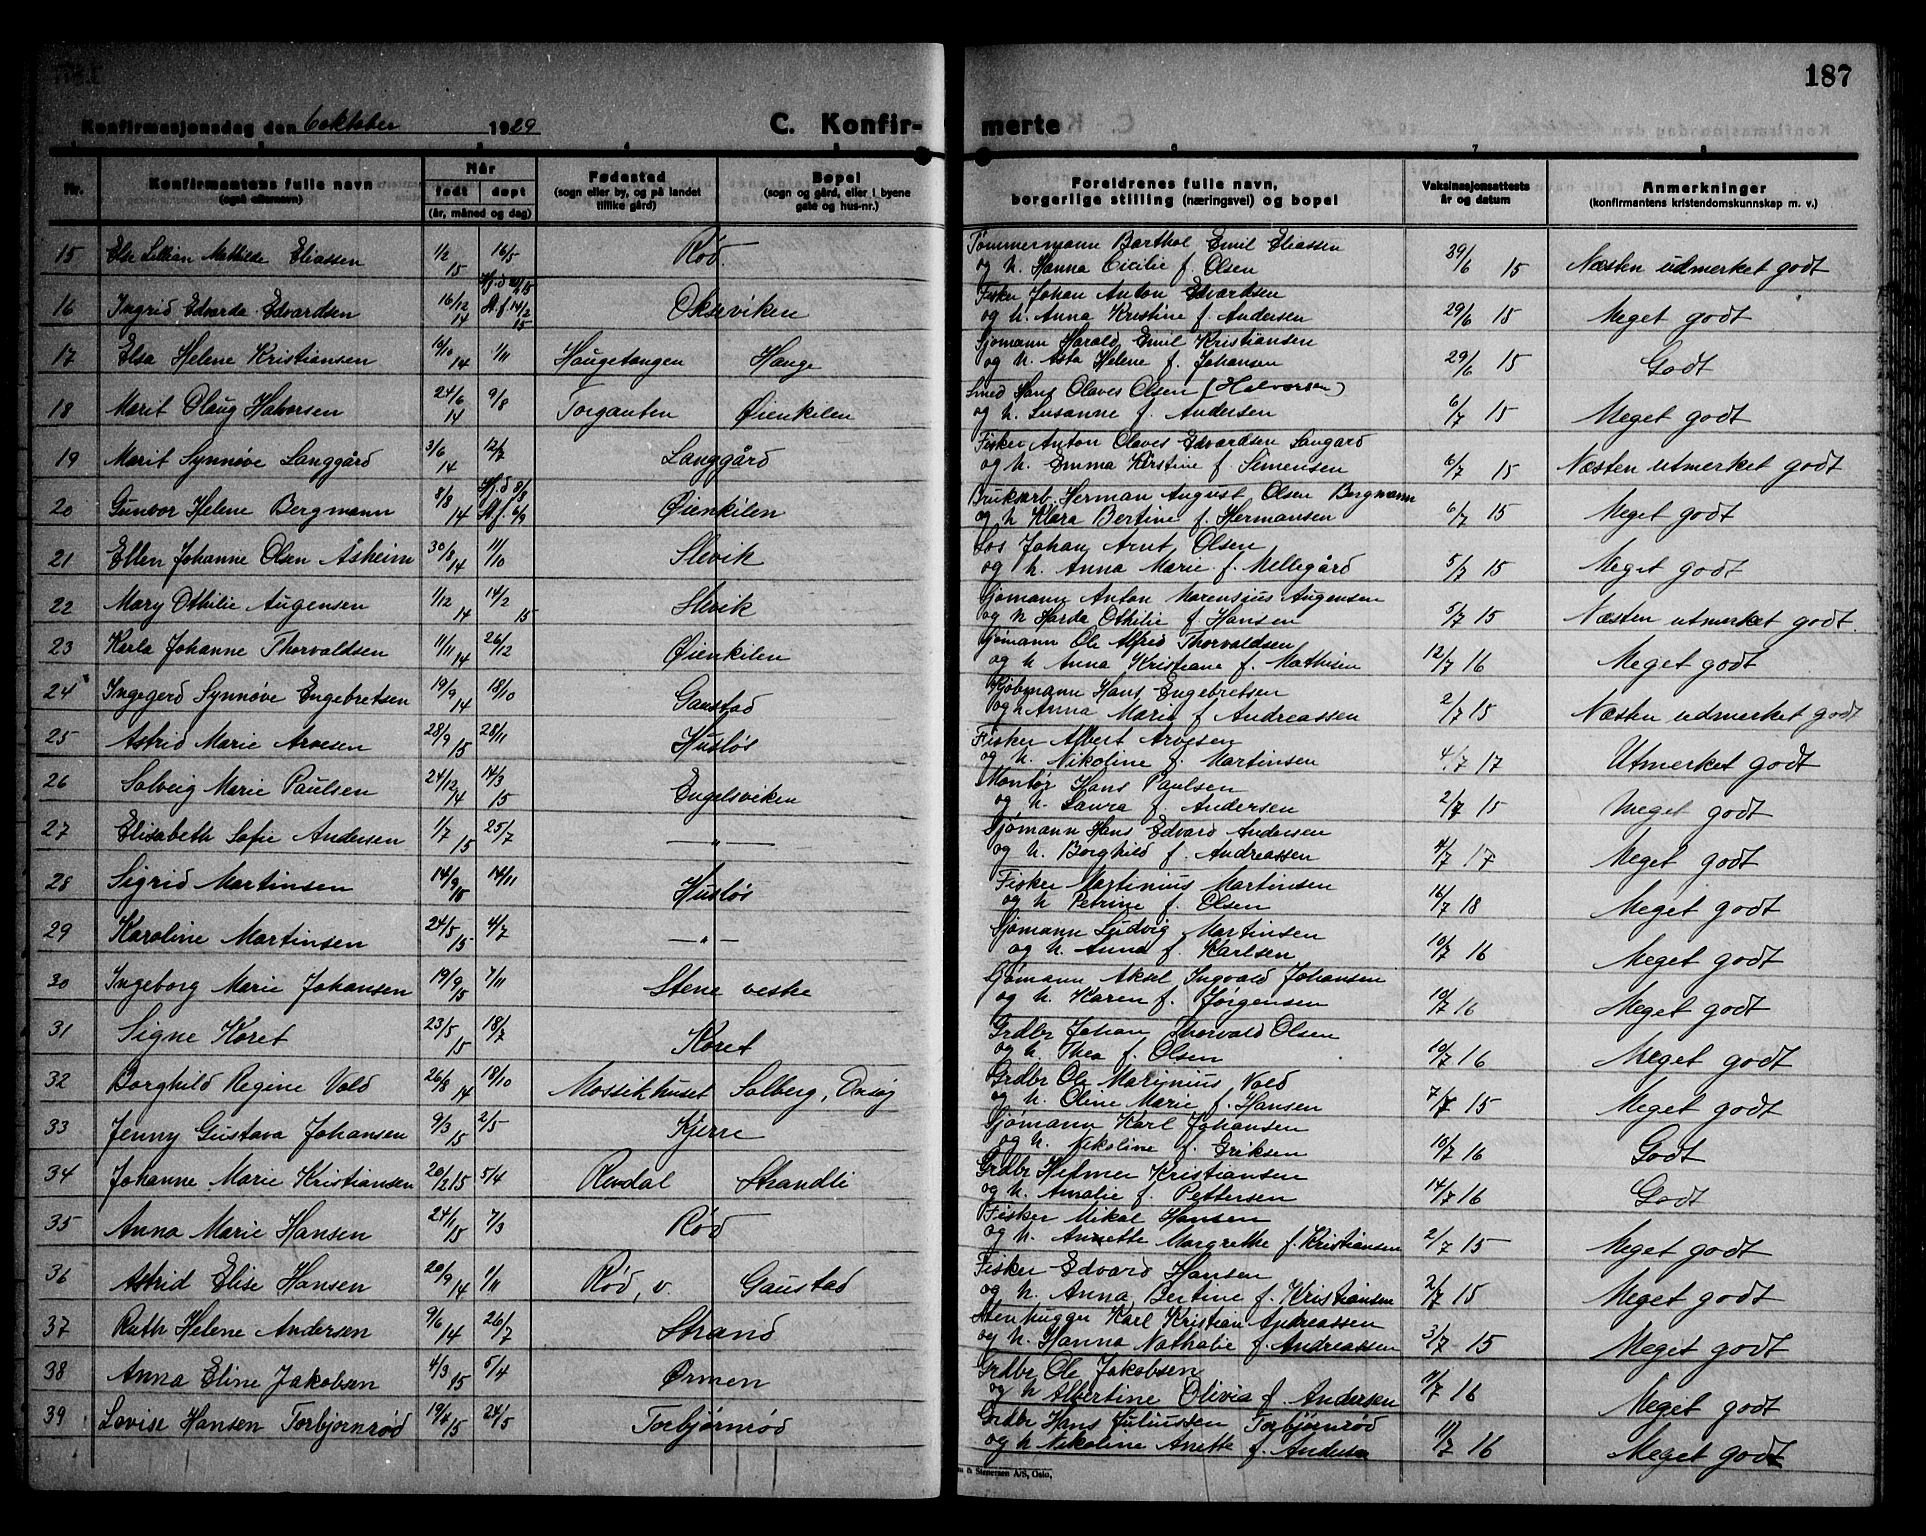 187
Konfirmasjonsdag den 6 oktober 1929 C. Konfir- merte
Nr. Konfirmantens fulle navn (også efternavn) Når født døpt (år, måned og dag) Fødested (sogn eller by, og på landet tillike gård) Bopel (sogn og gård, eller i byene gate og hus-nr.) Foreldrenes fulle navn, borgerlige stilling (næringsvei) og bopel Vaksinasjonsattests år og datum Anmerkninger (konfirmantens kristendomskunnskap m. v.)
6 7 8
15 Else Lillian Mathilde Eliassen 1/2 15 16/5 Rød. Tømmermann Barthol Emil Eliassen
og h. Hanna Cicilie f. Olsen 29/6 15 Næsten udmerket godt
16 Ingrid Edvarda Edvardsen 16/12 14 Hj.d. St.f. 14/2 15 Okseviken Fisker Johan Anton Edvardsen
og h. Anna Kristine f. Andersen 29/6 15 Meget godt
17 Elsa Helene Kristiansen 14 1/11 Haugetangen Hauge Sjømann Harald Emil Kristiansen
og h. Asta Helene f. Johansen 29/6 15 Godt
18 Marit Olaug Halvorsen 24/6 14 9/8 Torgauten Øienkilen Smed Hans Olaves Olsen (Halvorsen)
og h. Susanne f. Andersen 6/7 15 Meget godt
19 Marit Synnøve Langgård 3/6 14 12/7 Langgård Fisker Anton Olaves Edvardsen Langård
og h. Emma Kirstine f. Simensen 6/7 15 Næsten utmerket godt
20 Gunvor Helene Bergmann 8/8 14 Hj.d 8/8 St.f. 6/9 Øienkilen Bruksarb. Herman August Olsen Bergmann
og h Klara Bertine f. Hermansen 6/7 15 Meget godt
21 Ellen Johanne Olsen Åsheim 30/8 14 11/10 Slevik Los Johan Arnt Olsen
og h. Anna Marie f. Mellegård 5/7 15 Meget godt
22 Mary Othilie Augensen 1/12 14 14/2 15 Slevik Sjømann Anton Marensius Augensen
og h Harda Othilie f. Hansen 5/7 15 Næsten utmerket godt.
23 Karla Johanne Thorvaldsen 11/11 14 26/12 Øienkilen Sjømann Ole Alfred Thorvaldsen
og h Anna Kristiane f. Mathisen 12/7 16 Meget godt
24 Ingegerd Synnøve Engebretsen 19/9 14 18/10 Gaustad Kjøbmann Hans Engebretsen
og h Anna Marie f Andreassen 2/7 15 Næsten udmerket godt
25 Astrid Marie Arvesen 28/9 15 28/11 Husløs Fisker Albert Arvesen
og h. Nikoline f. Martinsen 4/7 17 Utmerket godt
26 Solveig Marie Paulsen 24/12 14 14/3 15 Engelsviken Montør Hans Paulsen
og h. Laura f. Andersen 2/7 15 Meget godt
27 Elisabeth Sofie Andersen 1/7 15 25/7 — " — Sjømann Hans Edvard Andersen
og h. Borghild f. Andreassen 4/7 17 Meget godt
28 Sigrid Martinsen 14/9 15 14/11 Husløs Fisker Martinius Martinsen
og h Petrine f. Olsen 16/7 18 Meget godt
29 Karoline Martinsen 24/5 15 4/7 — " — Sjømann Ludvig Martinsen
og h. Anna f. Karlsen 10/7 16 Meget godt
30 Ingeborg Marie Johansen 19/9 15 7/11 Stene veske Sjømann Aksel Ingvald Johansen
og h. Karen f. Jørgensen 10/7 16 Meget godt
31 Signe Køret 23/5 15 18/7 Køret Grdbr Johan Thorvald Olsen
og h. Thea f. Olsen 10/7 16 Meget godt
32 Borghild Regine Vold 26/8 14 18/10 Mossikhuset Solberg, Onsøy Grdbr Ole Marinius Vold
og h. Oline Marie f. Hansen 7/7 15 Meget godt
33 Jenny Gustava Johansen 9/3 15 2/5 Kjerre Sjømann Karl Johansen
og h. Nikoline f. Eriksen 10/7 16 Godt
34 Johanne Marie Kristiansen 20/2 15 5/4 Revdal Strandli Grdbr Helmer Kristiansen
og h. Amalie f. Pettersen 14/7 16 Godt
35 Anna Marie Hansen 24/1 15 7/3 Rød Fisker Mikal Hansen
og h. Annette Margrethe f. Kristiansen 2/7 15 Meget godt
36 Astrid Elise Hansen 20/9 14 1/11 Rød, v. Gaustad Fisker Edvard Hansen
og h. Anna Bertine f. Kristiansen 2/7 15 Meget godt
37 Ruth Helene Andersen 9/6 14 26/7 Strand Stenhugger Karl Kristian Andreassen
og h. Hanna Nathalie f. Andreassen 3/7 15 Meget godt
38 Anna Eline Jakobsen 4/3 15 5/4 Ørmen Grdbr Ole Jakobsen
og h Albertine Olivia f. Andersen 11/7 16 Meget godt
39 Lovise Hansen Torbjørnrød 19/4 15 24/5 Torbjørnrød Grdbr Hans Juliussen Torbjørnrød
og h Nikoline Anette f. Andersen 11/7 16 Meget godt
& Stenersen A/S, Oslo,